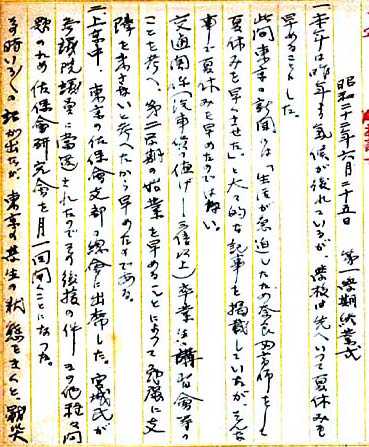 昭和二十三年六月二十五日 第一学期終業式
一、本年は昨年より気候が後れているが、学校は先へいって夏休みを
早めることゝした。
此间東京の新聞には「生活が急迫したため奈良女高師をして
夏休みを早へさせた」と大々的な記事を掲載していたがそんな
事で夏休みを早めたのでは無い。
交通関係（汽車賃の値上げ—二倍以上）卒業生 講習会等の
ことを考へ、第二学期の始業を早めることによって別に支
障を来さないと考へたから早めたのである。
二、上京中 東京の佐保会支部の総会に出席した。宮城氏が
参議院議員に当選されたのでその後援の件 その他種々问
題のため佐保会研究会を月一回開くことになった。
その時いろいろの話が出たが、東京の学生の状態をきくと、戦災